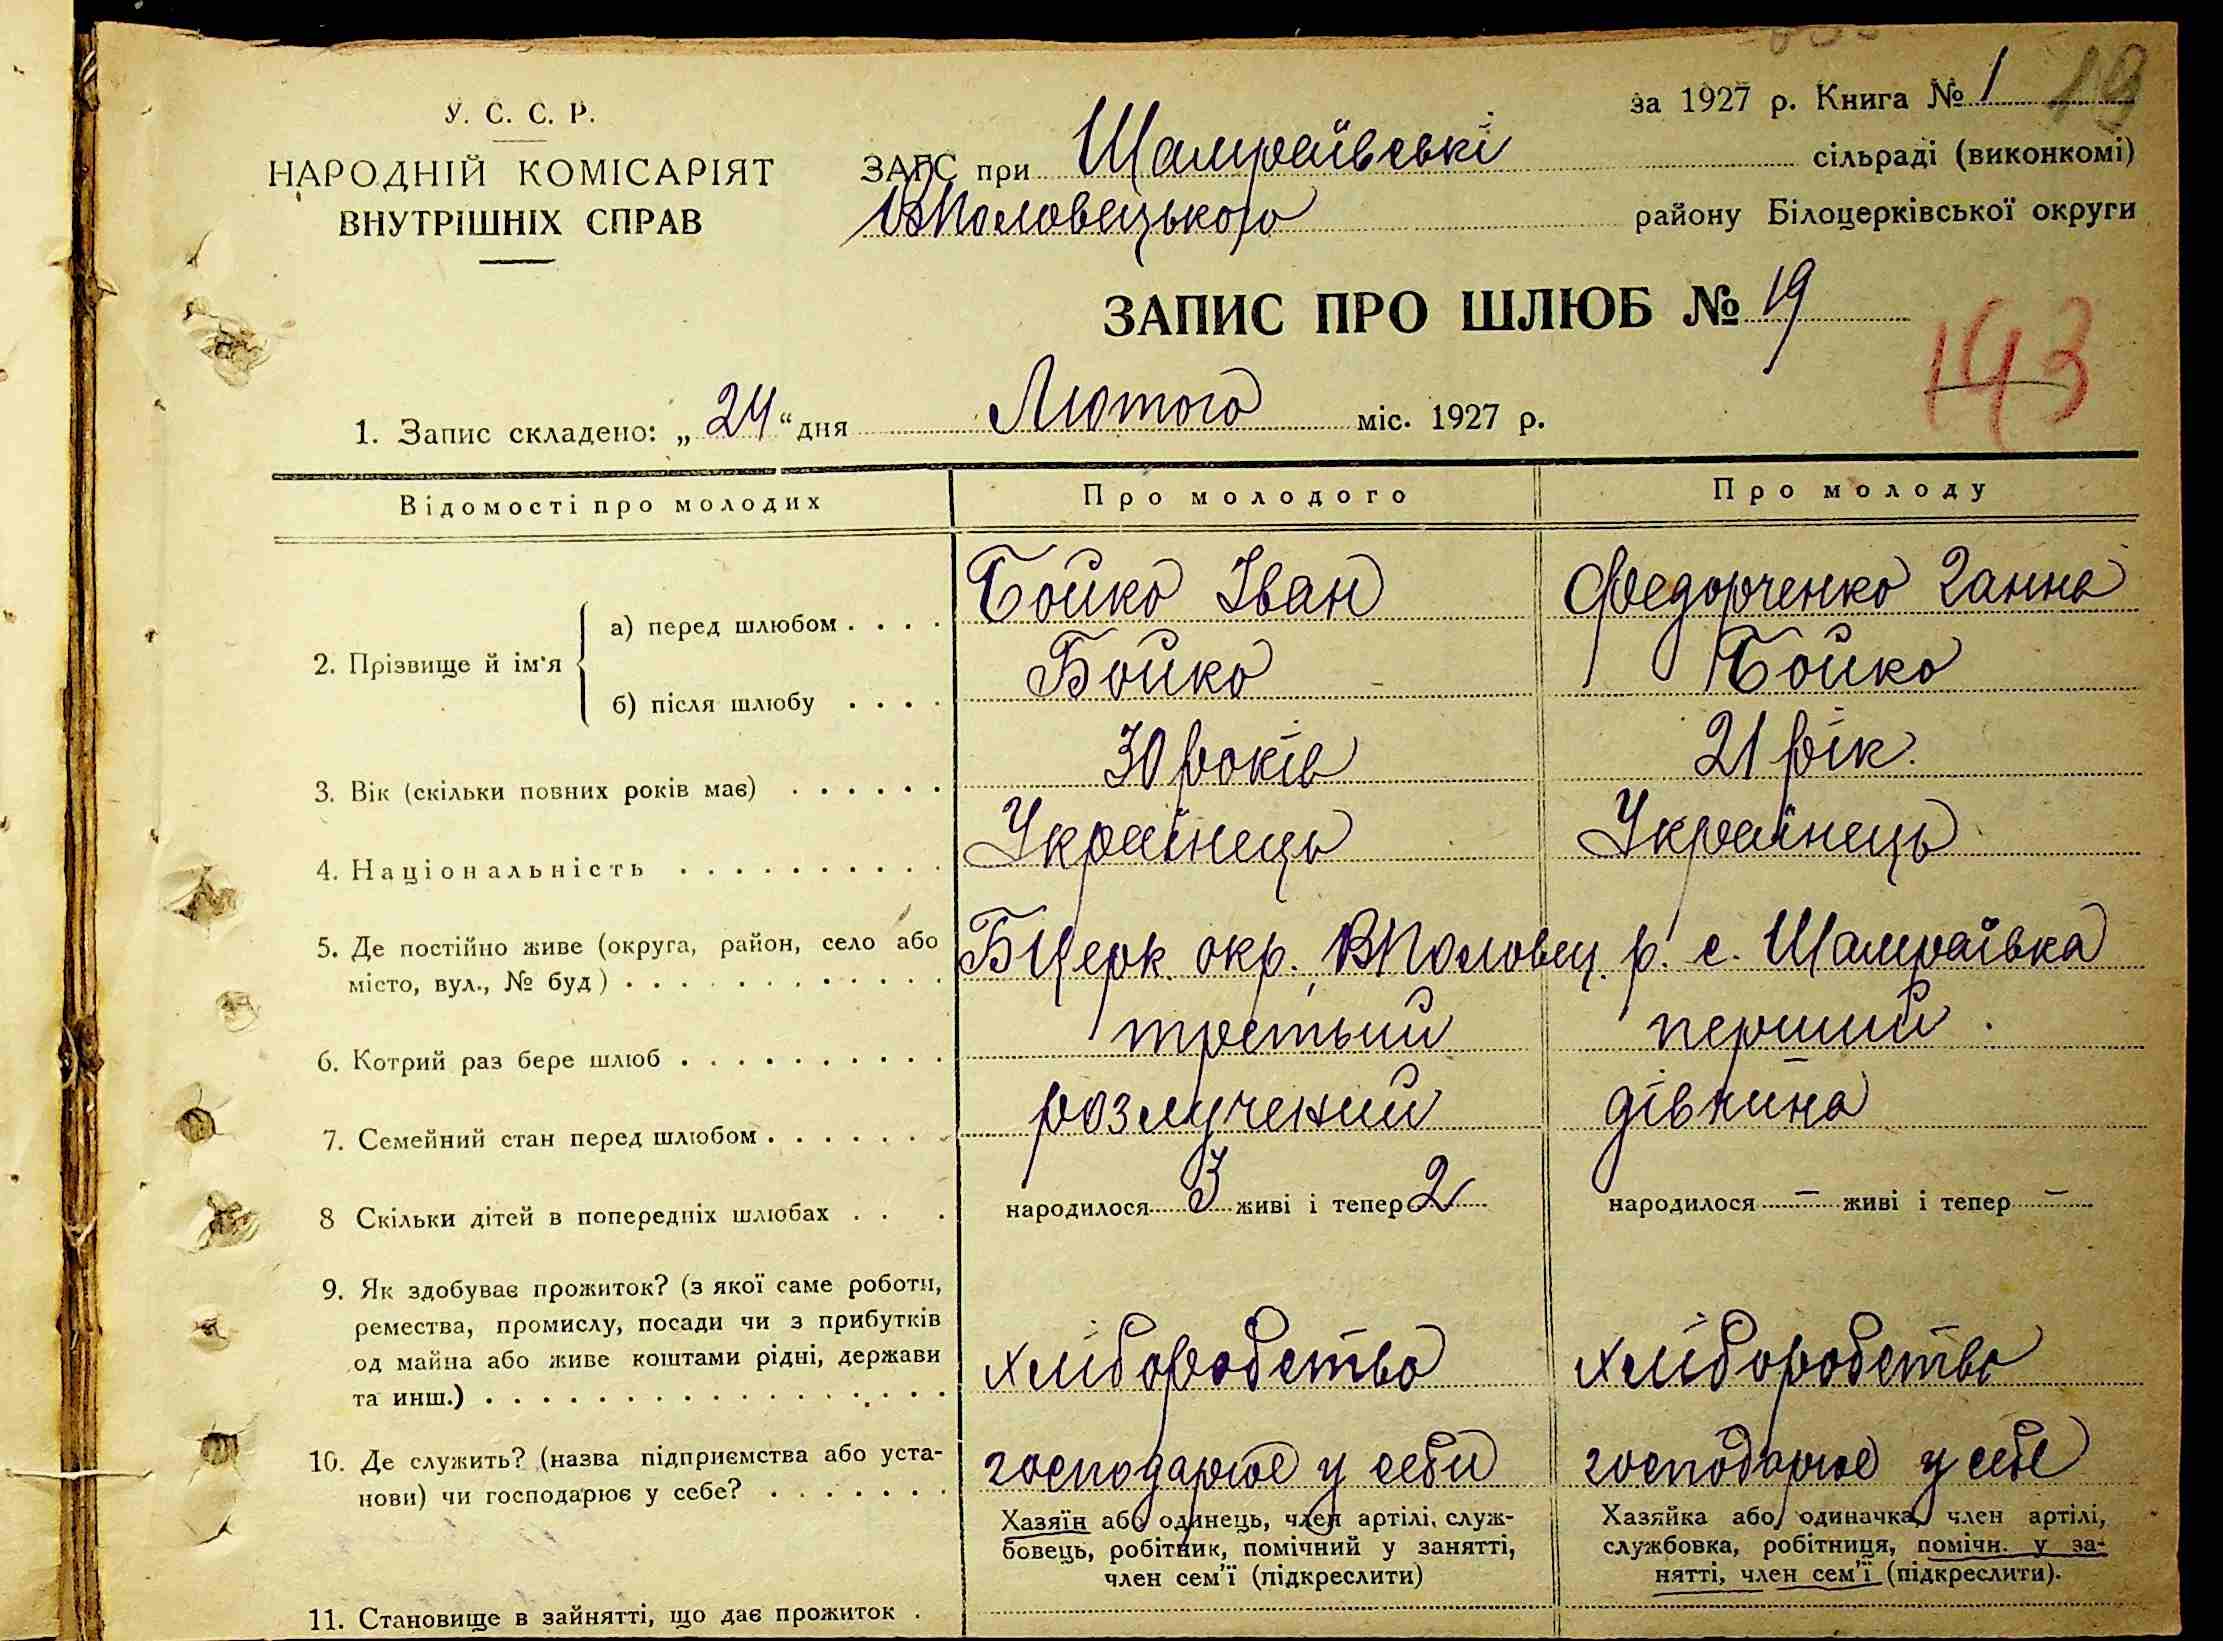 за 1927 р. Книга № 1 19
У. С. С. Р.
НАРОДНІЙ КОМІСАРІЯТ
ВНУТРІШНІХ СПРАВ
ЗАГС при Шамраївські сільраді (виконкомі)
ВПоловецького району Білоцерківської округи
ЗАПИС ПРО ШЛЮБ № 19
193
1. Запис складено: „24“ дня Лютого міс. 1927 р.
Відомості про молодих Про молодого Про молоду
2. Прізвище й ім'я
а) перед шлюбом . . . . Бойко Іван Федорченко Ганна
б) після шлюбу . . . . Бойко Бойко
3. Вік (скільки повних років має) . . . . . . 30 років 21 рік.
4. Національність . . . . . . . . . . Українець Українець
5. Де постійно живе (округа, район, село або
місто, вул., № буд) . . . . . . . . . . . . БЦерк. окр., ВПоловец. р. с. Шамраївка
6. Котрий раз бере шлюб . . . . . . . . . . третьий перший
7. Семейний стан перед шлюбом . . . . . . . розлучений дівчина
8 Скільки дітей в попередніх шлюбах . . . народилося 3 живі і тепер 2 народилося – живі і тепер –
9. Як здобуває прожиток? (з якої саме роботи,
ремества, промислу, посади чи з прибутків
од майна або живе коштами рідні, держави
та инш.) . . . . . . . . . . . . . . . . . хліборобство хліборобство
10. Де служить? (назва підприємства або уста-
нови) чи господарює у себе? . . . . . . . господарює у себи господарює у себе
Хазяїн або одинець, член артілі, служ-
бовець, робітник, помічний у занятті,
член сем'ї (підкреслити)
Хазяйка або одиначка, член артілі,
службовка, робітниця, помічн. у за-
нятті, член сем'ї (підкреслити).
11. Становище в зайнятті, що дає прожиток .